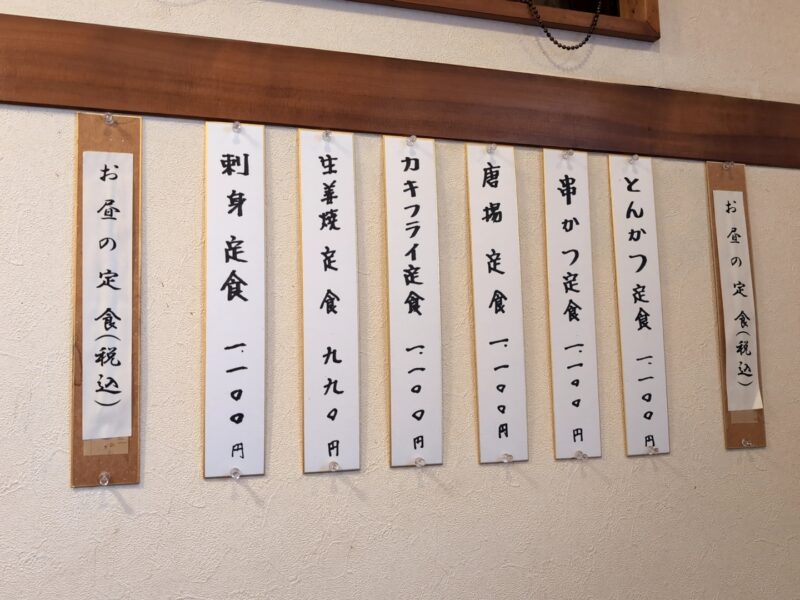 お昼の定食(税込)
とんかつ定食 一、一〇〇円
串かつ定食 一、一〇〇円
唐揚定食 一、一〇〇円
カキフライ定食 一、一〇〇円
生姜焼定食 九九〇円
刺身定食 一、一〇〇円
お昼の定食(税込)